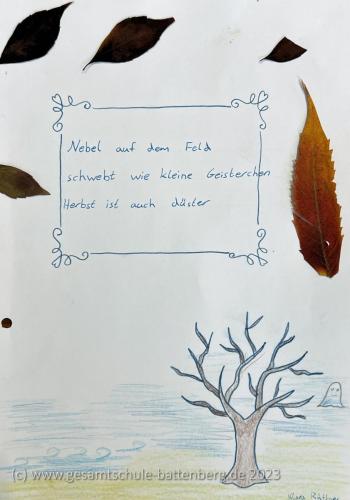 Nebel auf dem Feld
schwebt wie kleine Geisterchen
Herbst ist auch düster
(c) www.gesamtschule-battenberg.de 2023